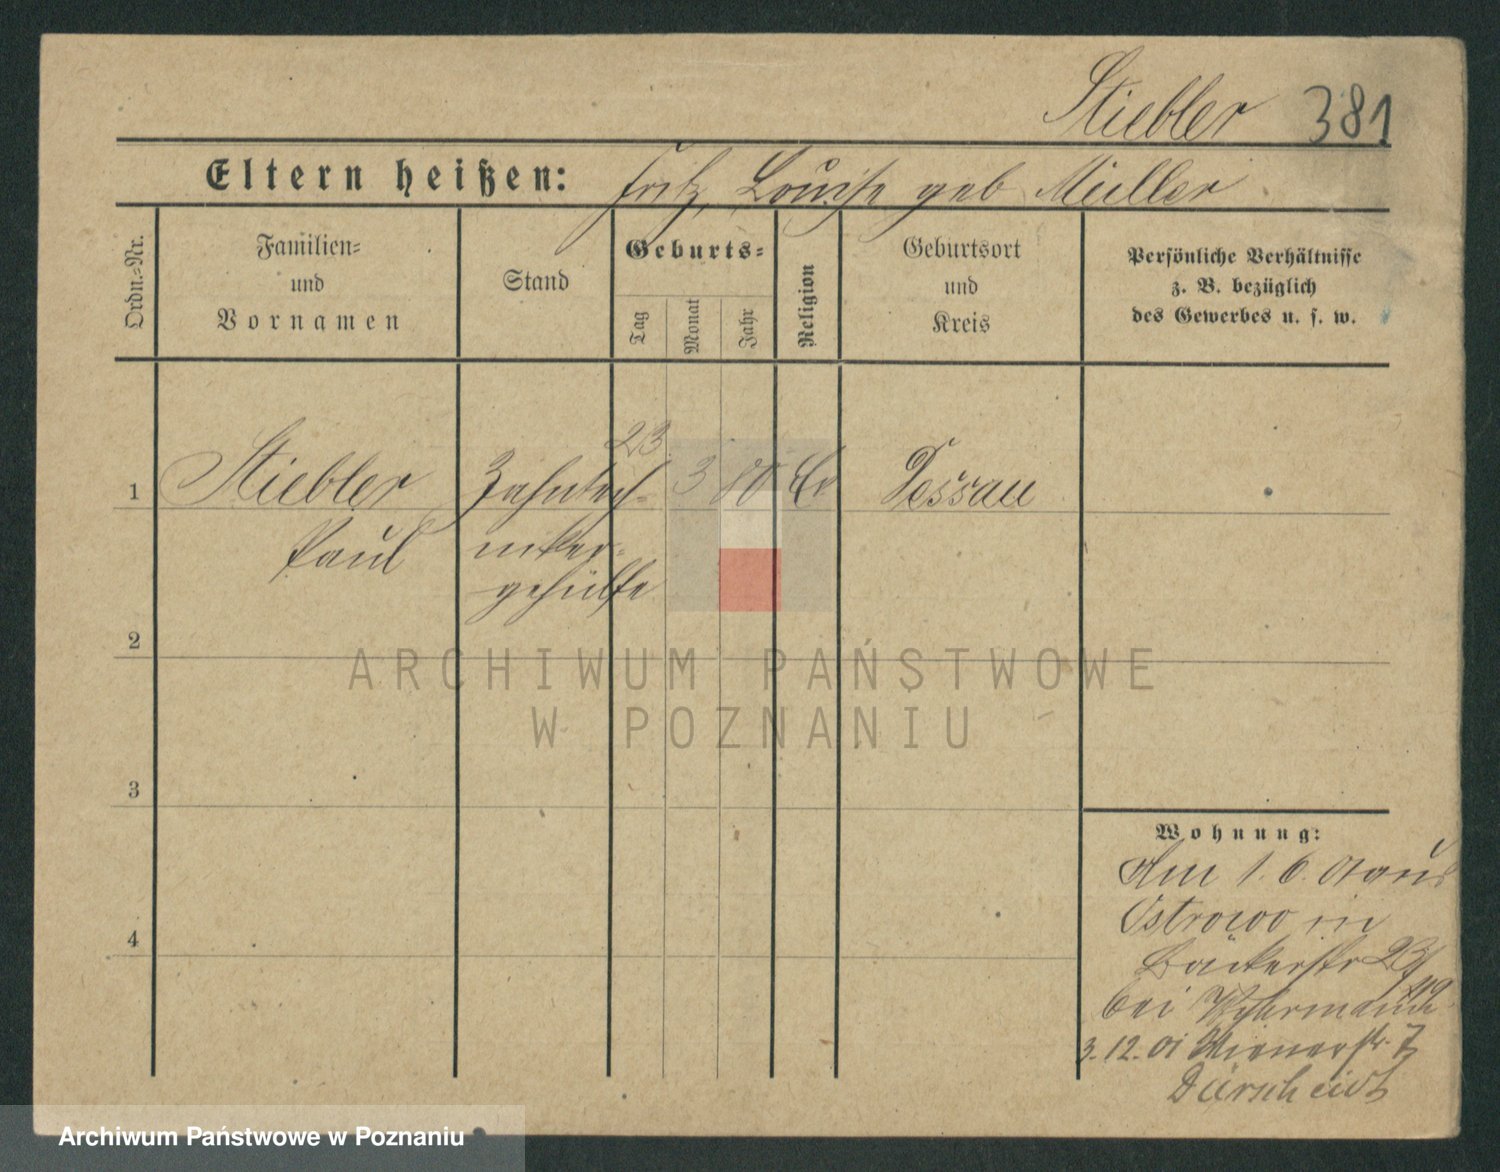 Stiebler 381
Eltern heißen: Fritz, Louise geb Müller
Ordn.=Nr.
Familien=
und
Vornamen
Stand
Geburts=
Tag
Monat
Jahr
Religion
Geburtsort
und
Kreis
Persönliche Verhältnisse
z. B. bezüglich
des Gewerbes u. s. w.
1 Stiebler Zahntech= 23 3 80 Ev Dessau
Paul niker=
gehülfe
2
3
4
Wohnung:
Am 1. 6. 01 aus
Ostrowo in
Bäckerstr 23
bei
3. 12. 01 Wienerstr. 7
Dürscheidt
ARCHIWUM PAŃSTWOWE
W POZNANIU
Archiwum Państwowe w Poznaniu